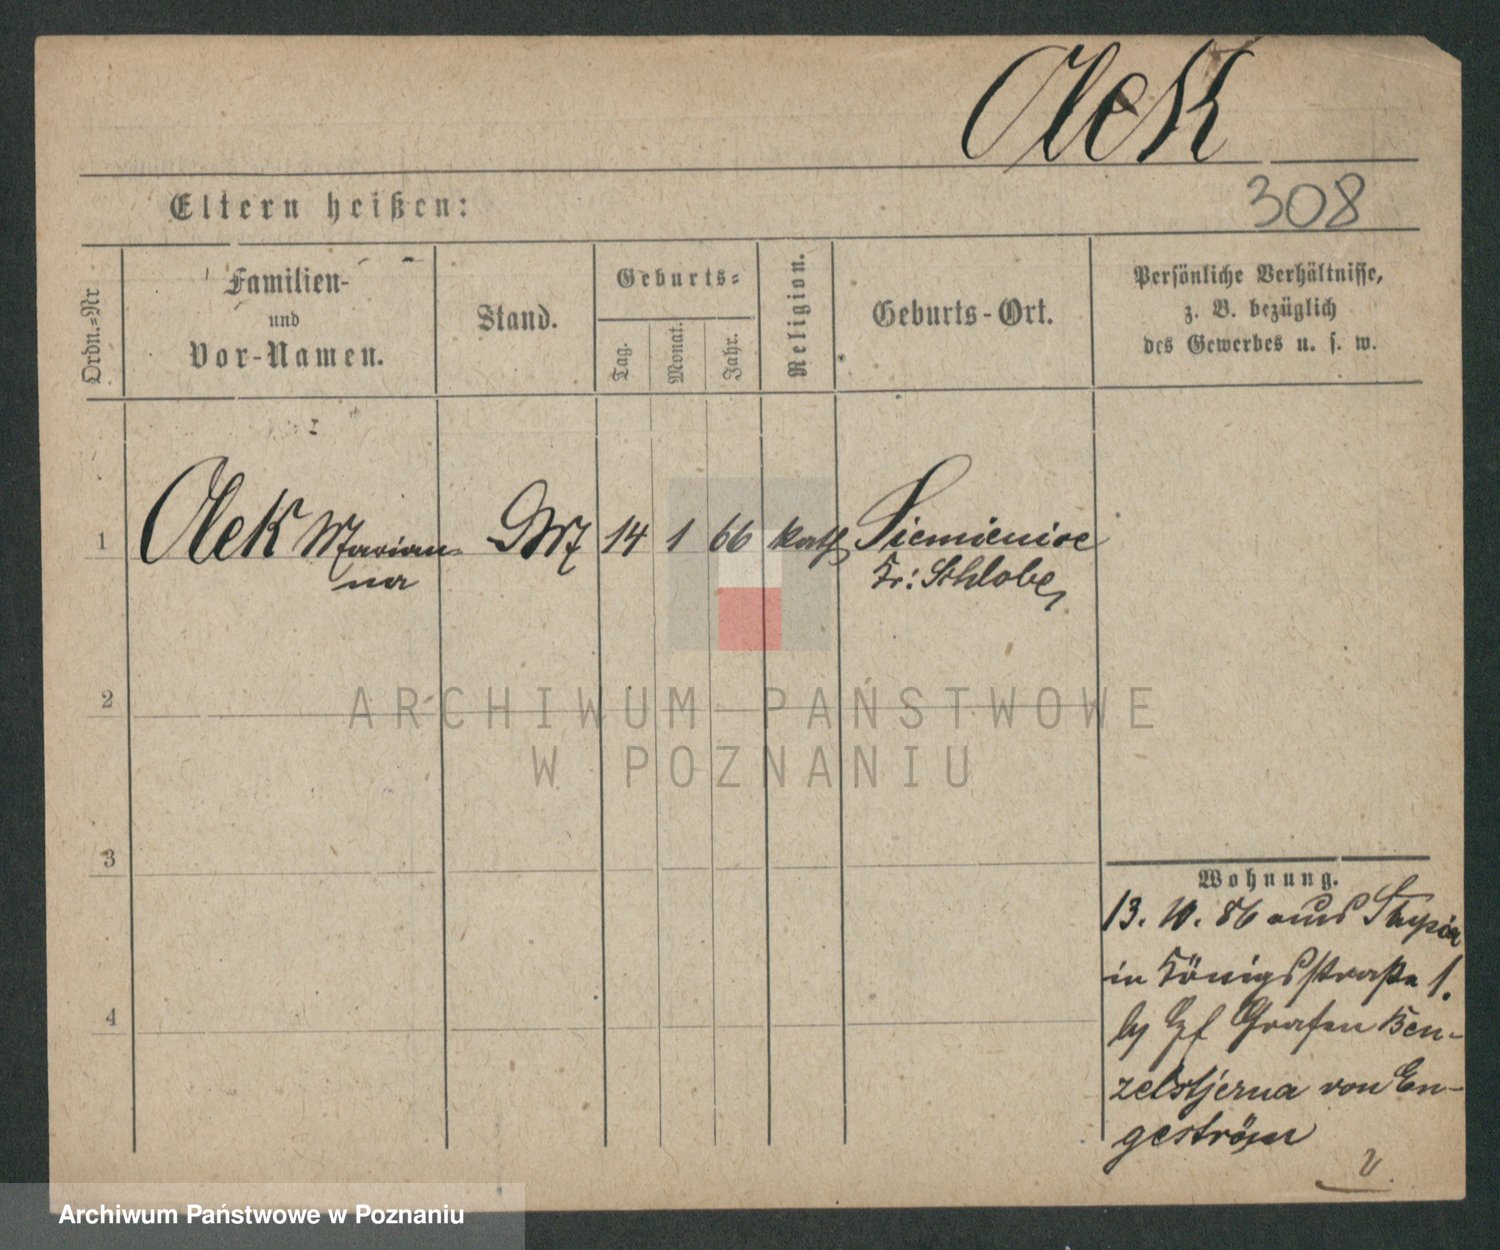 Olek
308
Eltern heißen:
Ordn.-Nr
Familien-
und
Vor-Namen.
Stand.
Geburts-
Tag.
Monat.
Jahr.
Religion.
Geburts-Ort.
Persönliche Verhältnisse,
z. B. bezüglich
des Gewerbes u. s. w.
1 Olek Marian- 14 1 66 kath Siemienice
na Kr: Schlobg
2
ARCHIWUM PAŃSTWOWE
W POZNANIU
3
Wohnung.
13. 10. 86 aus
in Königsstraße 1.
4
Grafen Ben-
zelstjerna von En-
geström
Archiwum Państwowe w Poznaniu